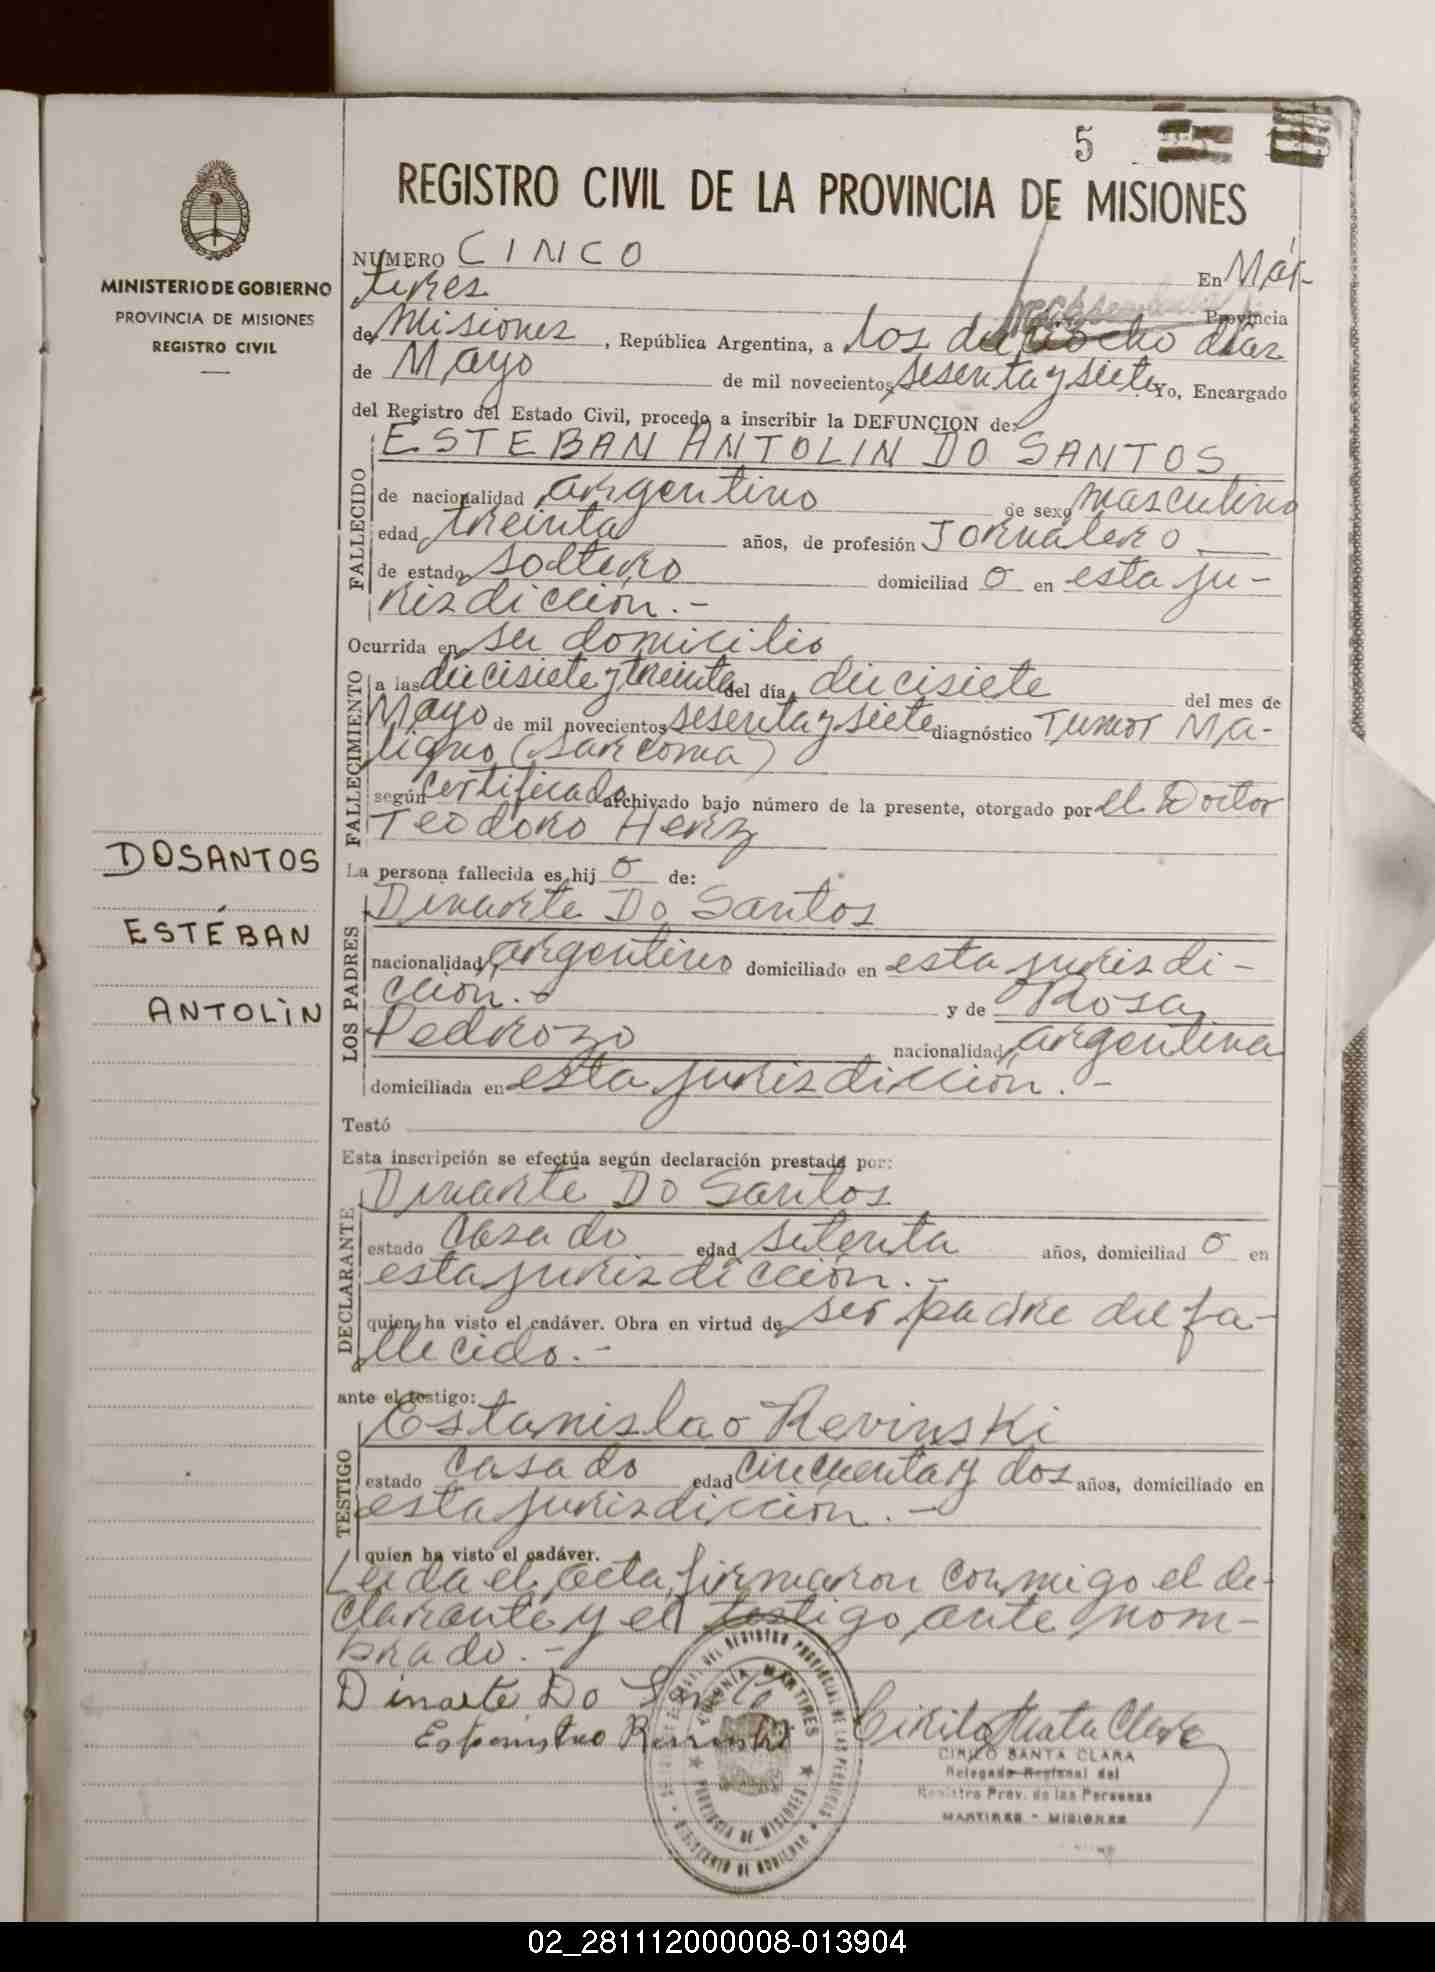 5
REGISTRO CIVIL DE LA PROVINCIA DE MISIONES
MINISTERIO DE GOBIERNO
PROVINCIA DE MISIONES
REGISTRO CIVIL
NUMERO CINCO En Már-
tires Provincia
de Misiones, República Argentina, a los dieciocho días
de Mayo de mil novecientos sesenta y siete Yo, Encargado
del Registro del Estado Civil, procedo a inscribir la DEFUNCION de:
ESTEBAN ANTOLIN DO SANTOS
FALLECIDO
de nacionalidad argentino de sexo masculino
edad treinta años, de profesión Jornalero
de estado soltero domiciliad o en esta ju-
risdicción.-
Ocurrida en su domicilio
FALLECIMIENTO
a las diecisiete y treinta del día diecisiete del mes de
Mayo de mil novecientos sesenta y siete diagnóstico Tumor Ma-
ligno (sarcoma)
según certificado archivado bajo número de la presente, otorgado por el Doctor
Teodoro Herz
DOSANTOS
ESTÉBAN
ANTOLIN
La persona fallecida es hij o de:
LOS PADRES
Dinarte Do Santos
nacionalidad argentino domiciliado en esta jurisdi-
cción.- y de Rosa
Pedrozo nacionalidad argentina
domiciliada en esta jurisdicción.-
Testó
Esta inscripción se efectúa según declaración prestada por:
DECLARANTE
Dinarte Do Santos
estado casado edad setenta años, domiciliad o en
esta jurisdicción.-
quien ha visto el cadáver. Obra en virtud de ser padre del fa-
llecido.-
ante el testigo:
TESTIGO
Estanislao Revinski
estado casado edad cincuenta y dos años, domiciliado en
esta jurisdicción.-
quien ha visto el cadáver.
Leida el acta, firmaron conmigo el de-
clarante y el testigo ante nom-
brado.-
Dinarte Do Santo
COLONIA MARTIRES
PROVINCIA DE MISIONES
CIRILO SANTA CLARA
Delegado Regional del
Registro Prov. de las Personas
MARTIRES - MISIONES
02_281112000008-013904